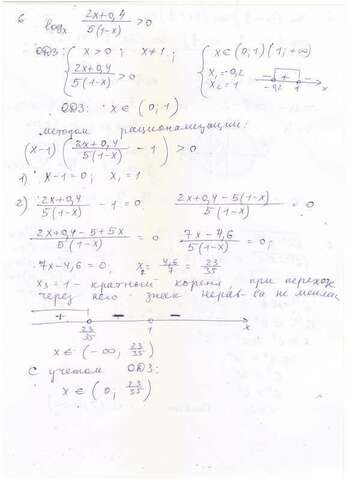 6 log_x (2x+0,4)/(5(1-x)) > 0
ОДЗ: { x > 0 ; x ≠ 1 ; (2x+0,4)/(5(1-x)) > 0
{ x ∈ (0;1) (1;+∞)
x₁ = -0,2
x₂ = 1
- + -
-0,2 1 x
ОДЗ: x ∈ (0; 1)
методом рационализации:
(x-1) ( (2x+0,4)/(5(1-x)) - 1 ) > 0
1) x-1=0; x₁ = 1
2) (2x+0,4)/(5(1-x)) - 1 = 0 (2x+0,4-5(1-x))/(5(1-x)) = 0
(2x+0,4-5+5x)/(5(1-x)) = 0 (7x-4,6)/(5(1-x)) = 0;
7x-4,6=0. x₂ = 4,6/7 = 23/35
x₃ = 1 - кратный корень, при переходе
через него знак нерав-ва не меняем
+ - -
23/35 1 x
x ∈ (-∞, 23/35)
С учетом ОДЗ:
x ∈ (0, 23/35)